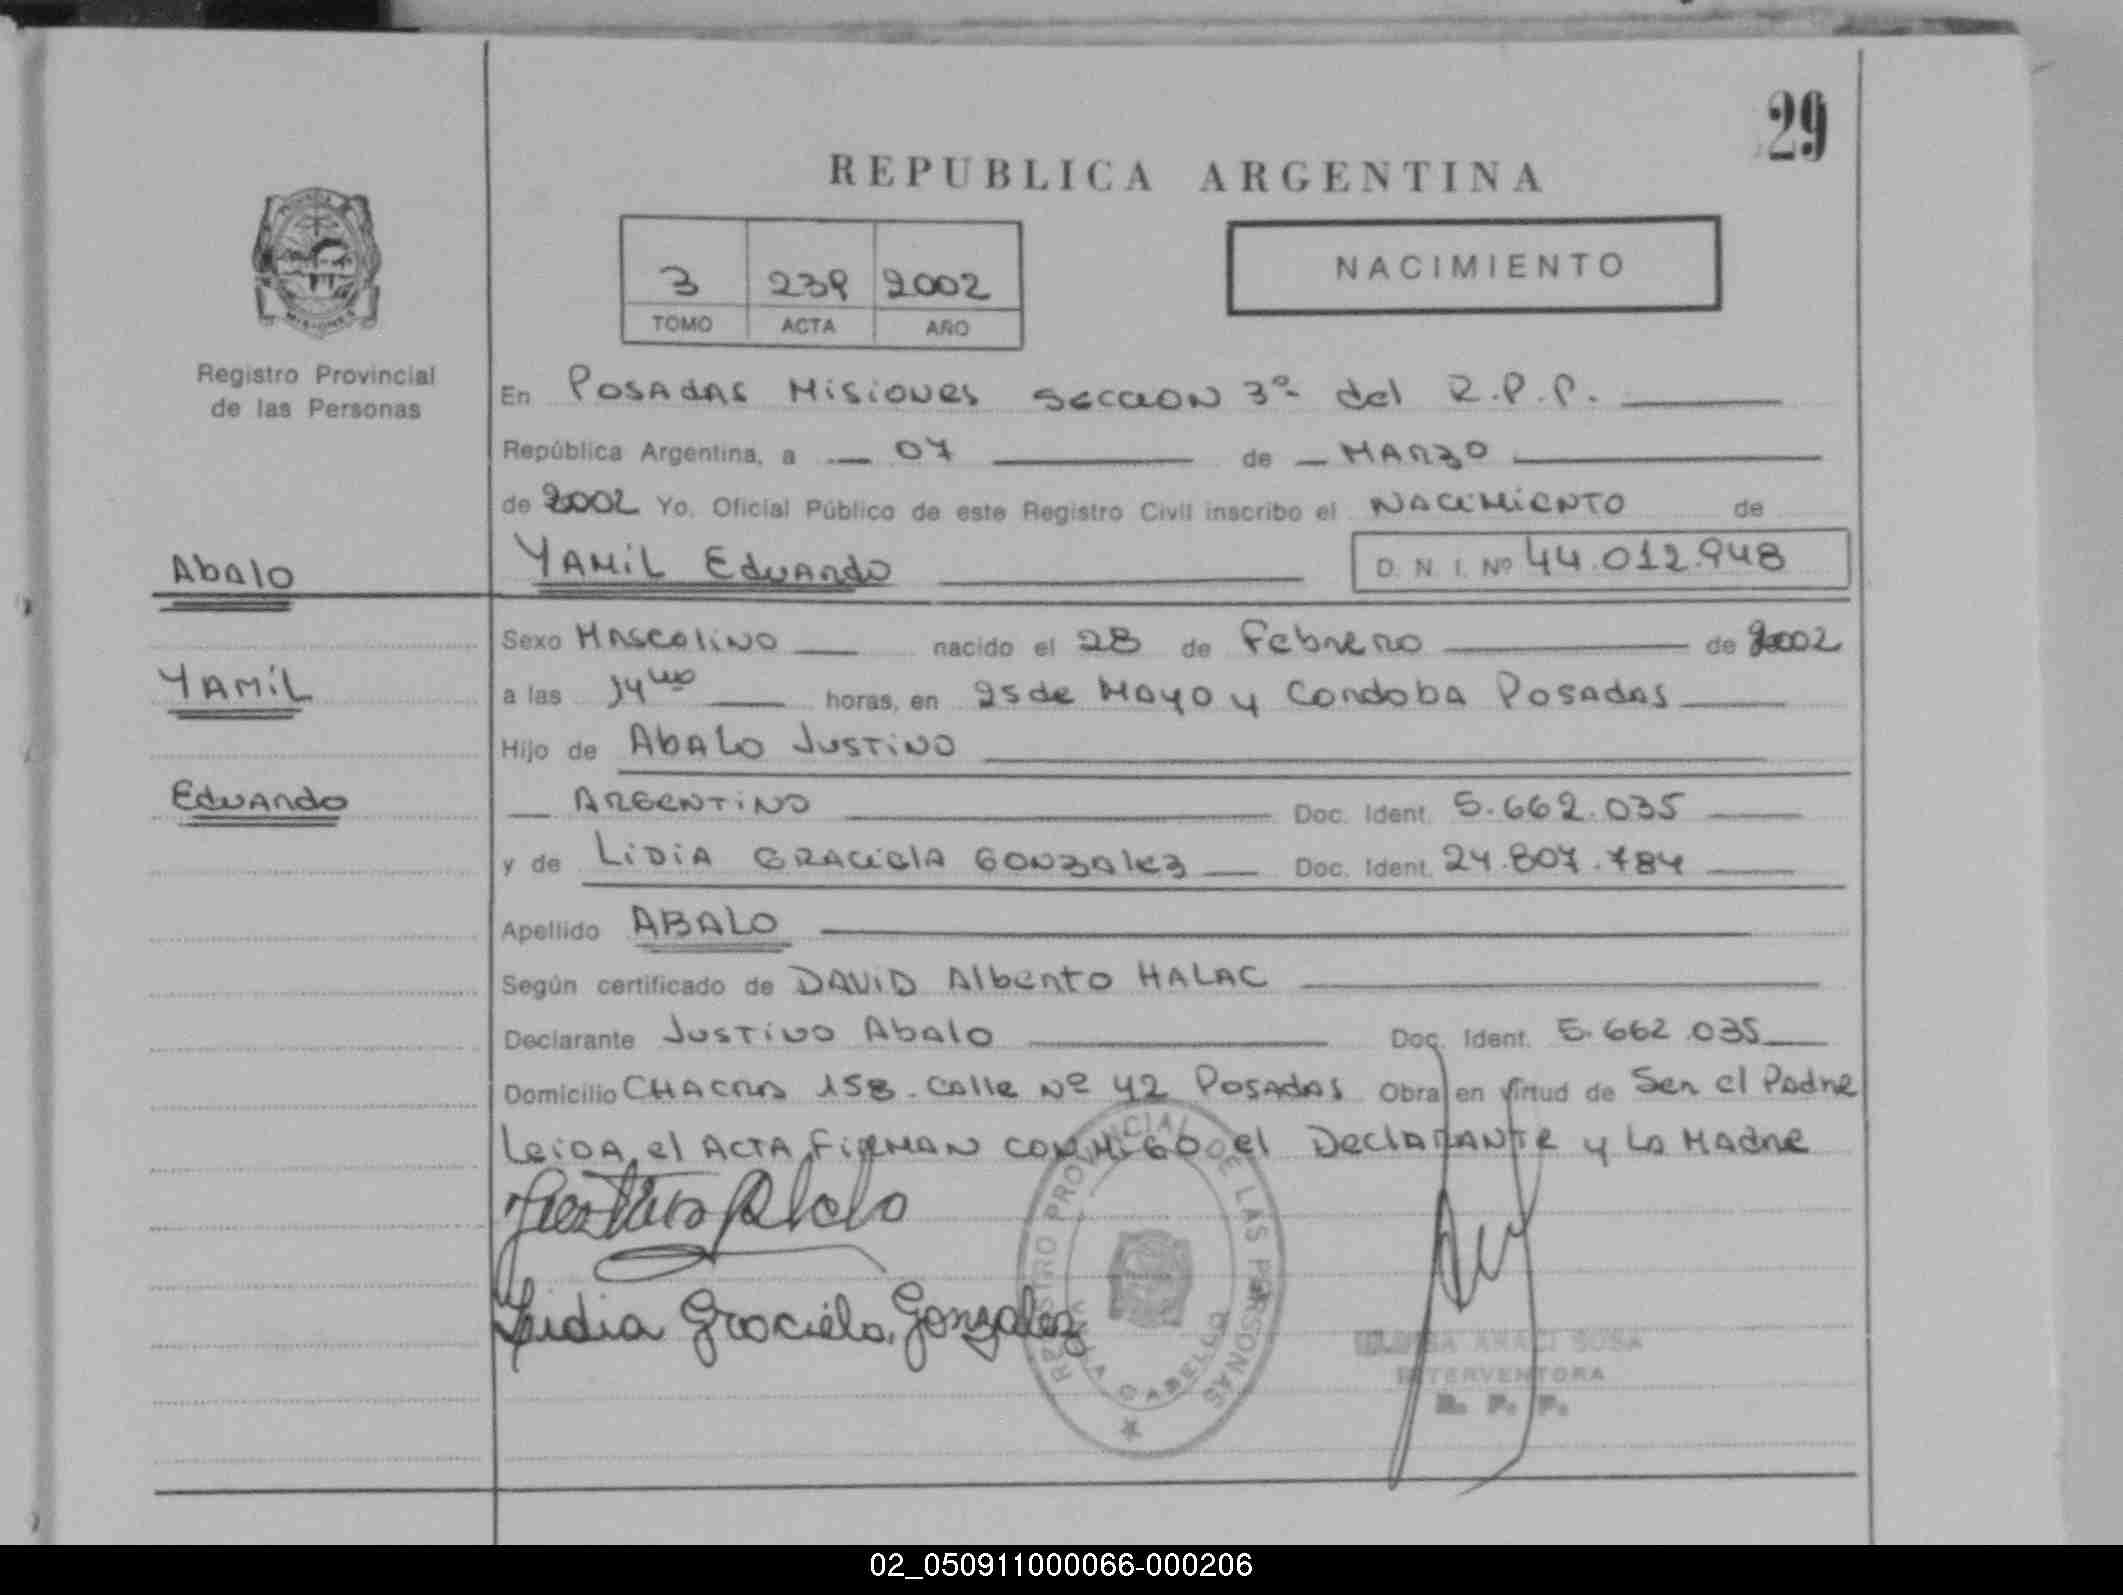 29
REPUBLICA ARGENTINA
MISIONES
3 239 2002
TOMO ACTA AÑO
NACIMIENTO
Registro Provincial
de las Personas
En Posadas Misiones Seccion 3ª del R.P.P.
República Argentina, a 07 de Marzo
de 2002 Yo, Oficial Público de este Registro Civil inscribo el Nacimiento de
Abalo
Yamil Eduardo D. N. I. Nº 44.012.948
Sexo Masculino nacido el 28 de Febrero de 2002
Yamil
a las 14 horas, en 25 de Mayo y Cordoba Posadas
Hijo de Abalo Justino
Eduardo
Argentino Doc. Ident. 5.662.035
y de Lidia Graciela Gonzalez Doc. Ident. 24.807.784
Apellido ABALO
Según certificado de David Alberto HALAC
Declarante Justino Abalo Doc. Ident. 5.662.035
Domicilio CHACRA 158 - Calle Nº 42 Posadas Obra en virtud de Ser el Padre
Leida el Acta Firman conmigo el Declarante y La Madre
Justino Abalo
Lidia Graciela Gonzalez
REGISTRO PROVINCIAL DE LAS PERSONAS
VILLA CABELLO
ARACI SOSA
INTERVENTORA
R. P. P.
02_050911000066-000206